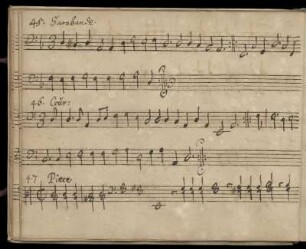 45. Sarabande.
46. Cour:
47. Piece